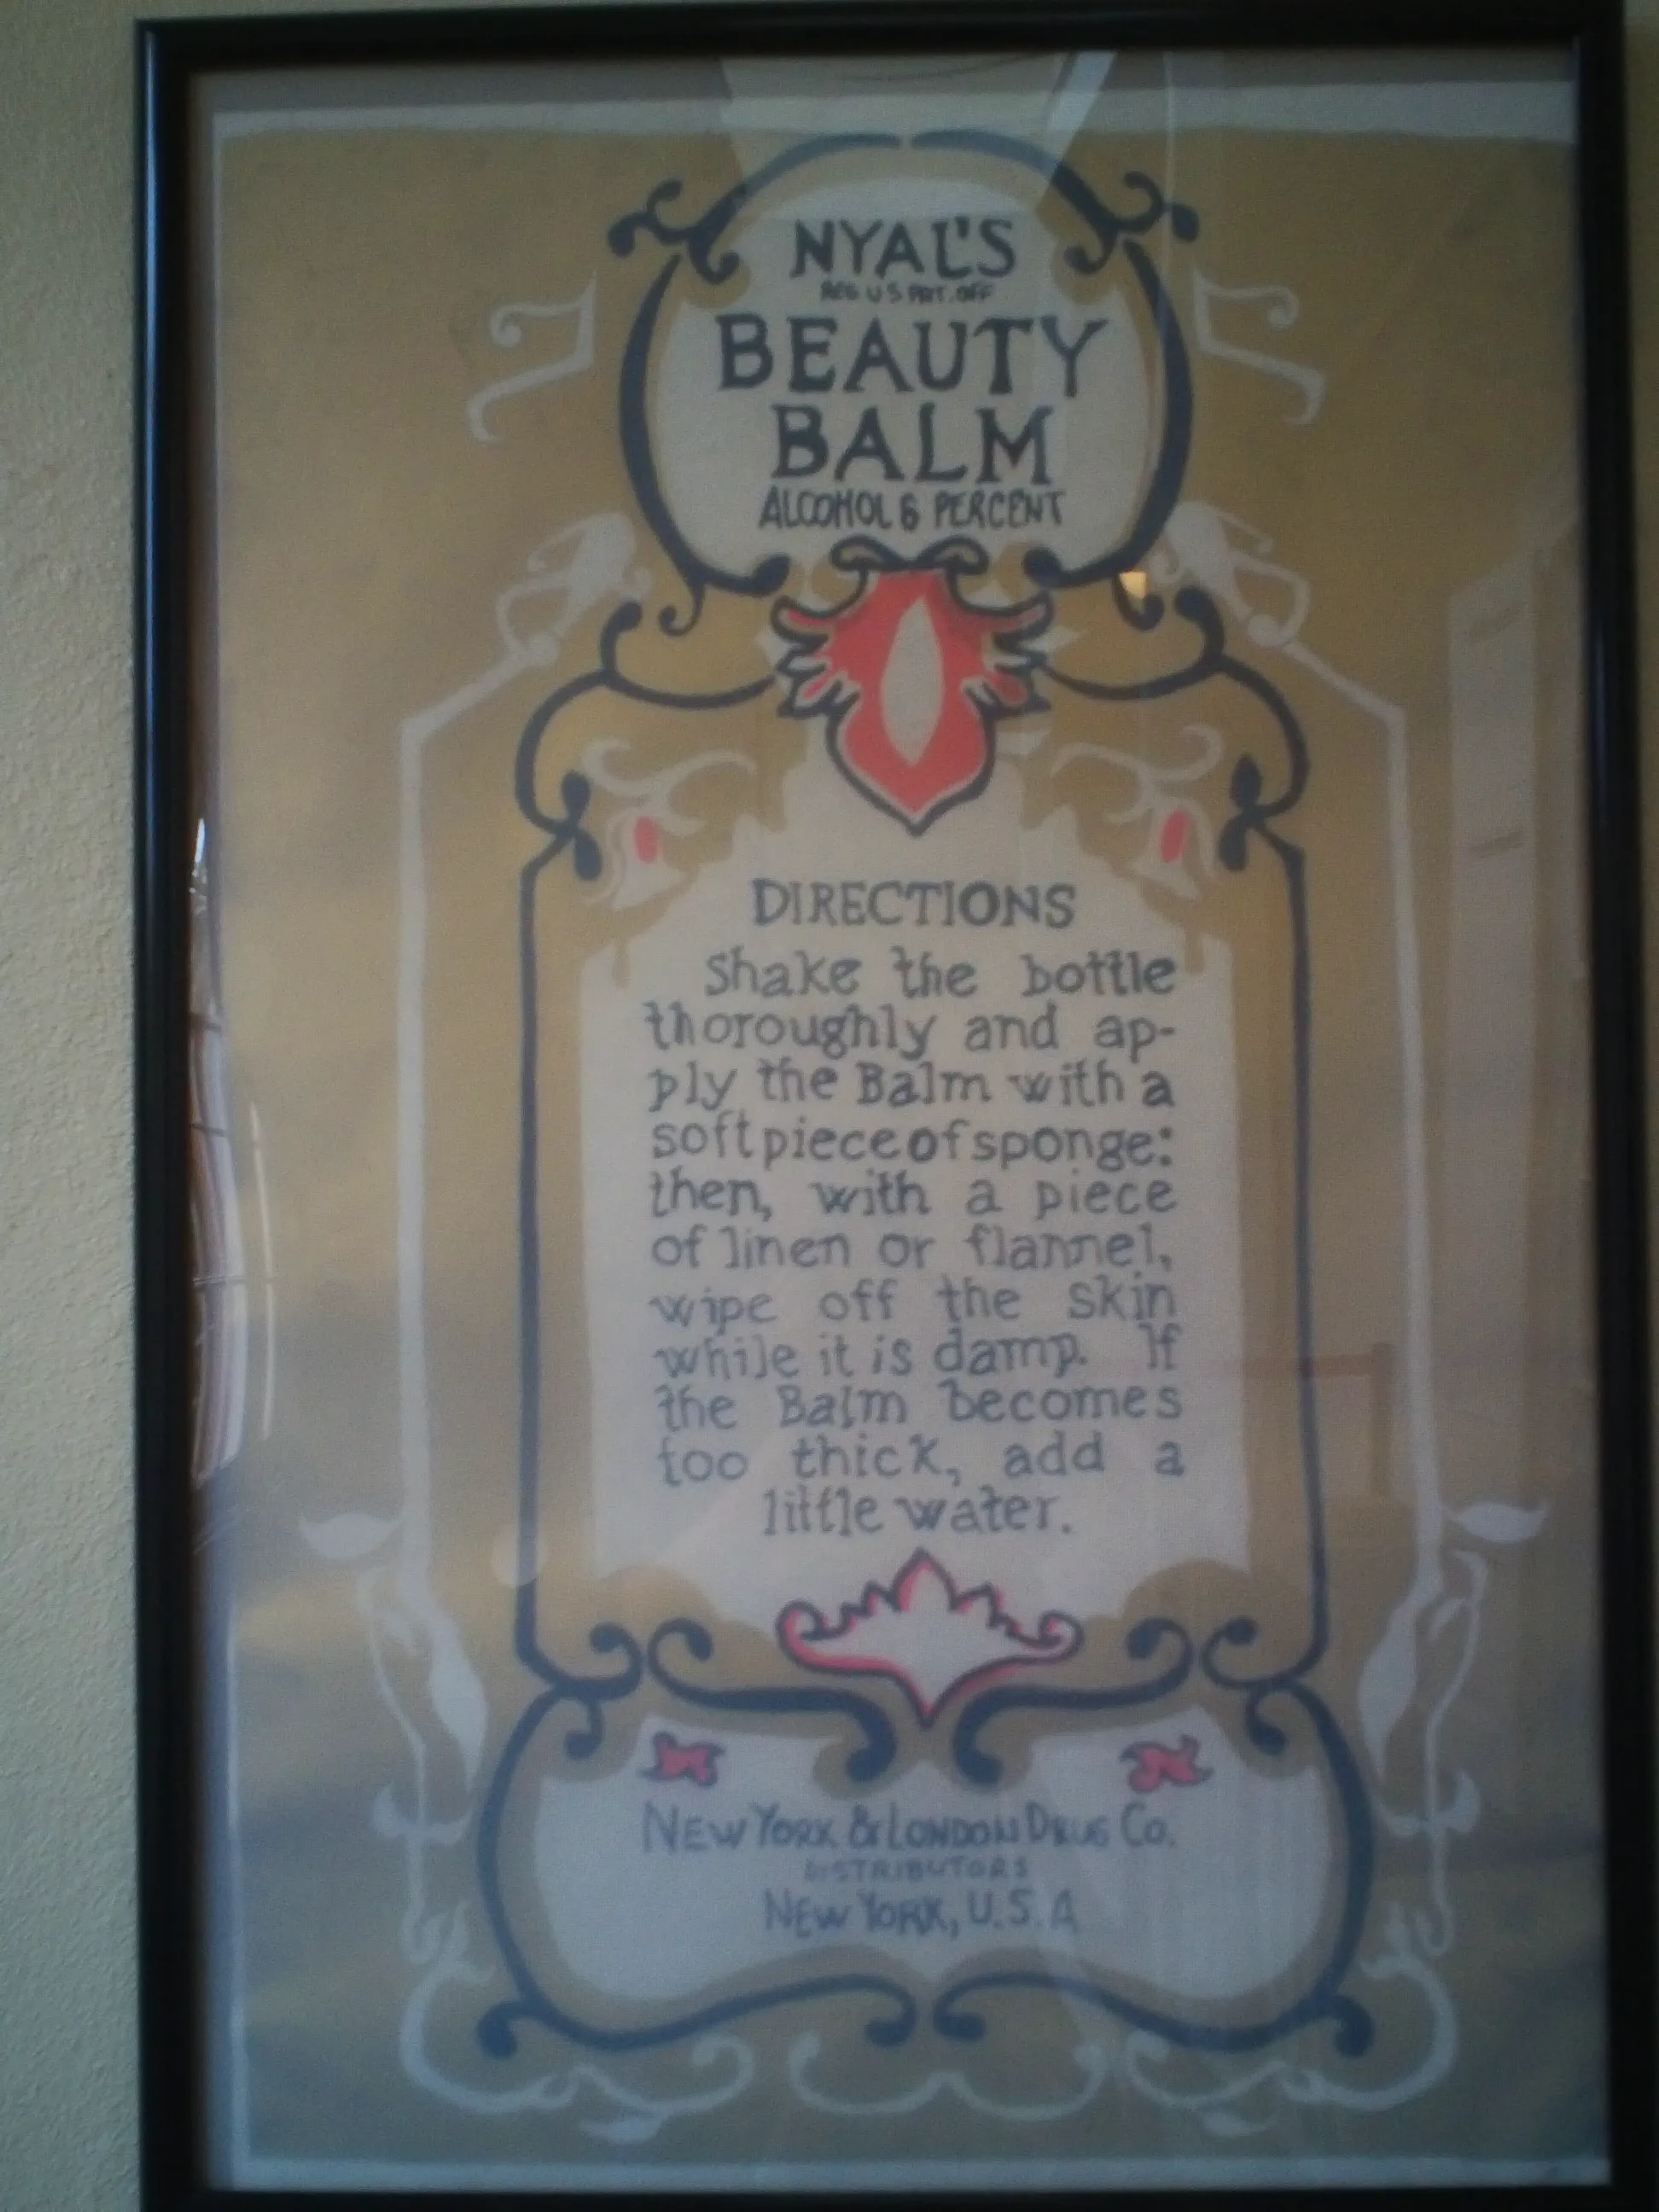 NYAL'S
REG US PAT. OFF
BEAUTY
BALM
ALCOHOL 6 PERCENT
DIRECTIONS
Shake the bottle
thoroughly and ap-
ply the Balm with a
soft piece of sponge:
then, with a piece
of linen or flannel,
wipe off the skin
while it is damp. If
the Balm becomes
too thick, add a
little water.
NEW YORK & LONDON DRUG CO.
DISTRIBUTORS
NEW YORK, U.S.A